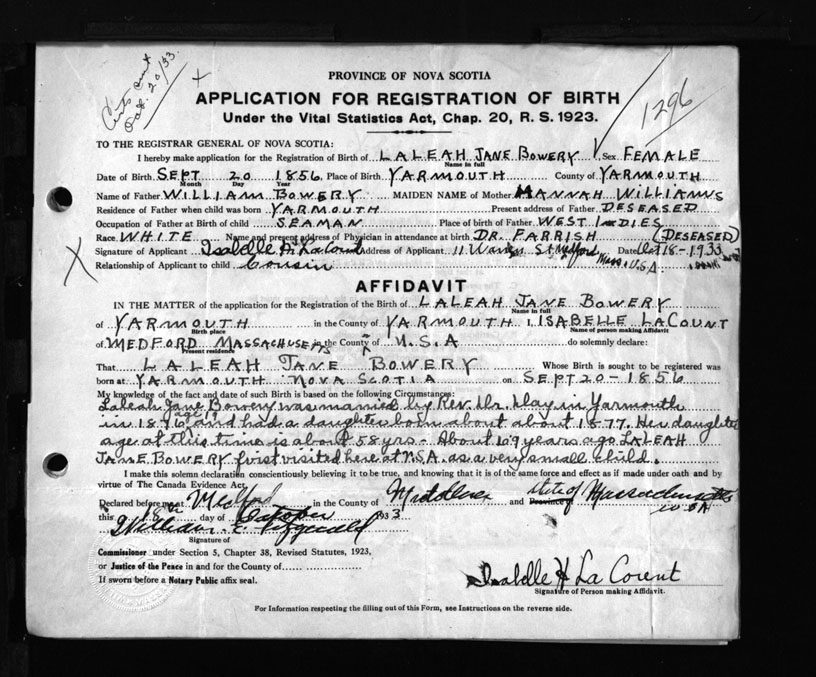 Oct. 20/33.
1296
PROVINCE OF NOVA SCOTIA
APPLICATION FOR REGISTRATION OF BIRTH
Under the Vital Statistics Act, Chap. 20, R. S. 1923.
TO THE REGISTRAR GENERAL OF NOVA SCOTIA:
I hereby make application for the Registration of Birth of LALEAH JANE BOWERY Sex FEMALE
Name in full
Date of Birth SEPT 20 1856 Place of Birth YARMOUTH County of YARMOUTH
Month Day Year
Name of Father WILLIAM BOWERY MAIDEN NAME of Mother HANNAH WILLIAMS
Residence of Father when child was born YARMOUTH Present address of Father DESEASED
Occupation of Father at Birth of child SEAMAN Place of birth of Father WEST INDIES
Race WHITE Name and present address of Physician in attendance at birth DR. FARRISH (DESEASED)
Signature of Applicant Isabelle H LaCount Address of Applicant 11 Warren St Medford Mass. U.S.A. Date Oct 18-1933
Relationship of Applicant to child Cousin
AFFIDAVIT
IN THE MATTER of the application for the Registration of the Birth of LALEAH JANE BOWERY
Name in full
of YARMOUTH in the County of YARMOUTH I, ISABELLE LACOUNT
Birth place Name of person making Affidavit
of MEDFORD MASSACHUSETTS in the County of U.S.A do solemnly declare:
Present residence
That LALEAH JANE BOWERY Whose Birth is sought to be registered was
born at YARMOUTH NOVA SCOTIA on SEPT 20-1856
My knowledge of the fact and date of such Birth is based on the following Circumstances:
Laleah Jane Bowery was married by Rev. Mr. Day in Yarmouth
age 19
in 1876 and had a daughter born about about 1877. Her daughters
age at this time is about 58 yrs - About 69 years ago LALEAH
JANE BOWERY first visited here at U.S.A. as a very small child.
I make this solemn declaration conscientiously believing it to be true, and knowing that it is of the same force and effect as if made under oath and by
virtue of The Canada Evidence Act.
Declared before me at Medford in the County of Middlesex and Province of State of Massachusetts
U.S.A
this 18th day of October 1933
William E. Fitzgerald
Signature of
Commissioner under Section 5, Chapter 38, Revised Statutes, 1923,
or Justice of the Peace in and for the County of
If sworn before a Notary Public affix seal.
Isabelle H La Count
Signature of Person making Affidavit.
For Information respecting the filling out of this Form, see Instructions on the reverse side.